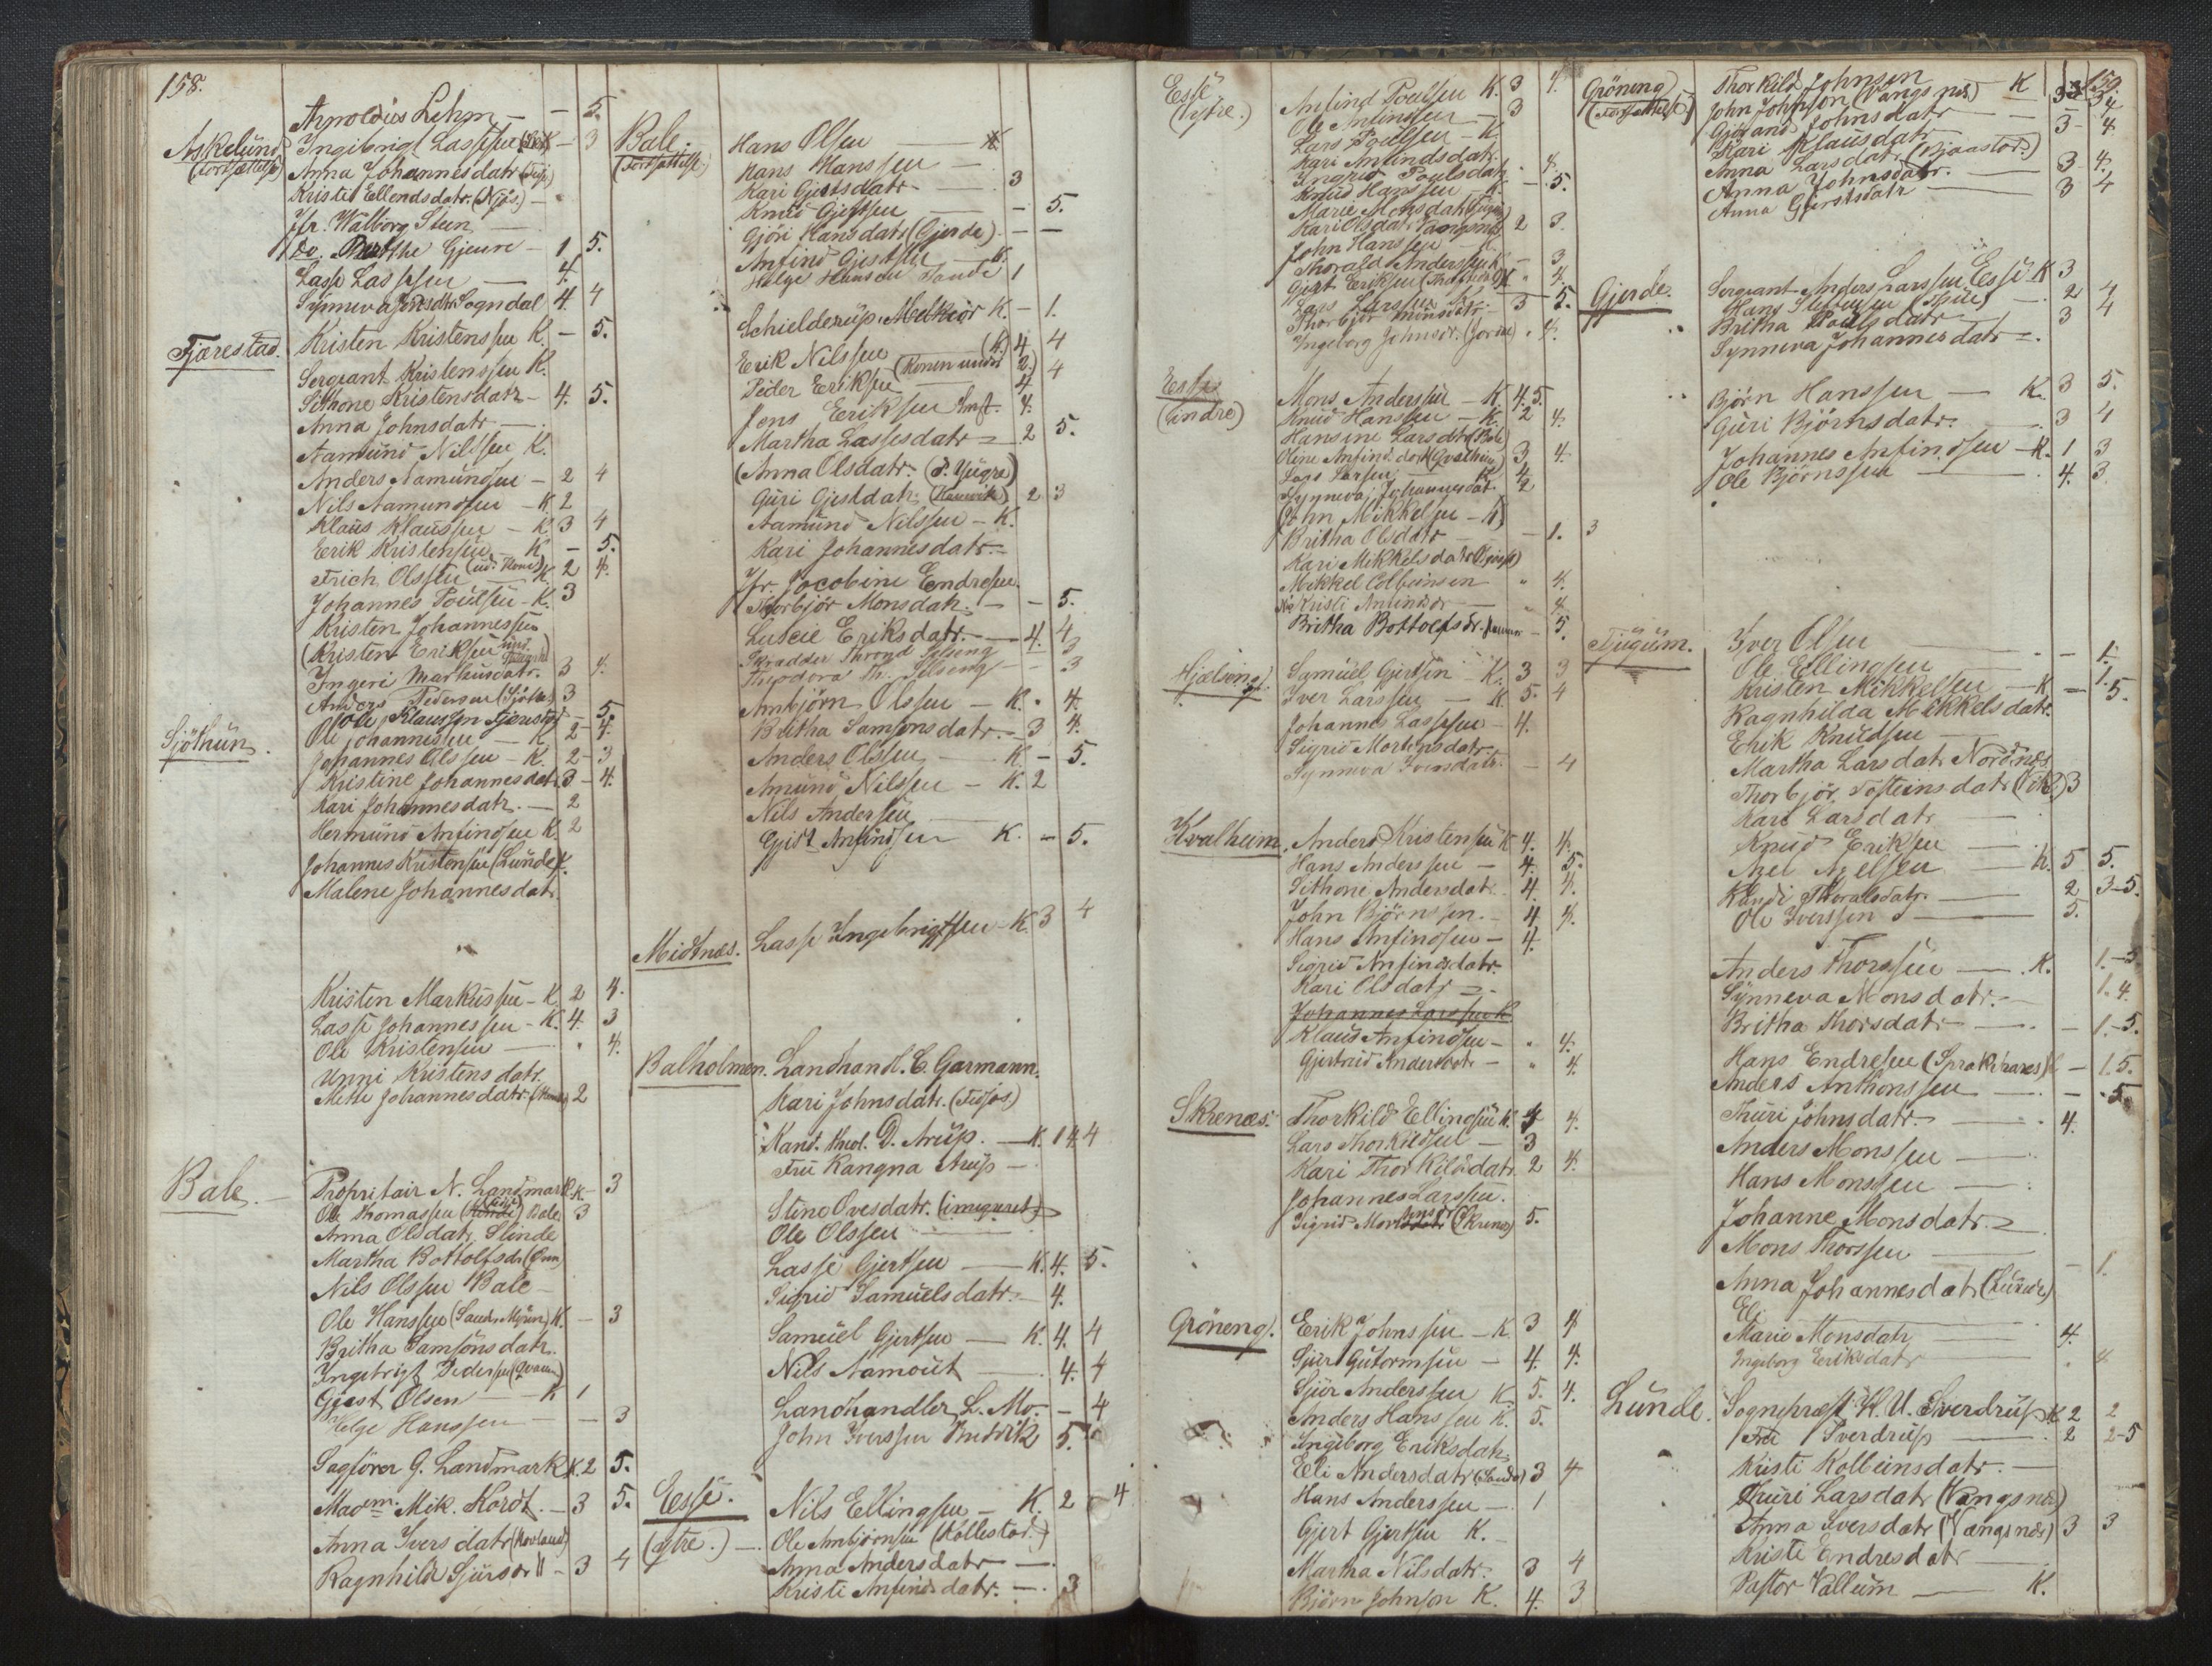 158.
Askelund
(Fortsættelse)
Arnoldus Lehm — - 5.
Ingebrigt Lassesen K - 3
Anna Johannesdatr
Kristi Ellendsdatr. (Njøs.) —
Jfr. Walborg Steen —
Do. Marthe Gjeure - 1 5.
Lasse Lassesen — 4.
Synneva Sogndal 4 4
Fjærestad.
Kristen Kristenssen K. - 5.
Sergeant Kristenssen K.
Sithone Kristensdatr - 4. 5.
Anna Johnsdatr —
Aamund Nilssen K.
Anders Aamundsen - 2 4
Nils Aamundsen - K. 2
Klaus Klaussen - K. 3 4
Erik Kristensen - K - 5.
Frich Olssen K 2 4.
Johannes Poulsen - K. 3
Kristen Johannessen
(Kristen Eriksen
Ingeri Markusdatr. 3 4.
Anders Pedersen 3
Ole Klaussen Fjærestad - 5
Sjøthun.
Ole Johannessen - K 2 - 4.
Johannes Olssen - K. 2 - 3
Kristine Johannesdatr. 3 - 4.
Kari Johannesdatr. — 2
Hermund Anfindsen K. 2
Johannes Kristensen (Lunde) K.
Malene Johannesdatr.
Kristen Markussen - K. 2 4.
Lasse Johannessen - K. 4. 3
Ole Kristensen — 4.
Unni Kristensdatr.
Mette Johannesdatr. 2
Bale. —
Propritair N. Landmark K - 3
Ole Thomassen Bale 3
Anna Olsdatr Slinde
Martha Bottolfsdr
Nils Olssen Bale -
Ole Hanssen K. - 3
Britha Samsonsdatr.
Ingebrigt Pedersen
Gjest Olsen — K 1
Helge Hanssen — - 3
Sagfører G. Landmark K. 2 5.
Madm. Mik. Kordt. - 3 5.
Anna Iversdatr
Ragnhilda Sjursdr - 3 4
Bale.
(Fortsættelse.)
Hans Olsen K
Hans Hanssen —
Kari Gjertsdatr — 3
Knud Gjertsen — - 5.
Gjøri Hansdatr (Gjerde) - —
Anfind Gjertsen — K.
Helge Hansen Tande 1
Schielderup Melkior K. - 1.
Erik Nilssen (K.) 4 4
Peder Eriksen (Konen under 2.) 4 4
Jens Eriksen 4.
Martha Lassesdatr — 2 5.
(Anna Olsdatr.
Guri Gjestdatr. 2 3
Aamund Nilssen - K.
Kari Johannesdatr. -
Jfr. Jocobine Endresen
Thorbjør Monsdatr. — - 5.
Luscie Eriksdatr. — 4. 4
Skrædder Thrond Selseng 3
Theodora Th. Selseng - 3
Ambjørn Olssen - K. 4.
Britha Samsonsdatr. - 3 4.
Anders Olssen — K. - 5.
Amund Nilssen - K. 2
Nils Andersen —
Gjert Anfindsen K. - 5.
Midtnæs.
Lasse Ingebrigtsen - K. 3 4
Balholmen.
Landhandl. C. Garmann.
Kari Johnsdatr.
Kand. theol. D. Arup. — K. 1 4 4
Fru Rangna Arup —
Stine Ovesdatr. (imigreret)
Ole Olssen
Lasse Gjertsen — K. 4. 5.
Sigrid Samuelsdatr. — 4.
Samuel Gjertsen — K. 4. 4
Nils Aamout — 4. 4
Landhandler L. Mo. — 4
John Iverssen 5.
Esse.
(østre.) —
Nils Ellingsen — K. 2 4
Ole Ambjørnsen
Anna Andersdatr —
Kristi Anfindsdatr. — 3
159.
Esse
(Vestre.)
Anfind Poulsen K. 3 4.
Ole Anfindssen 3
Lars Poulssen - K
Kari Anfindsdatr
Ingrid Poulsdatr 4.
Knud Hanssen - K. - 5.
Marie Monsdatr
Kari Olsdatr Vangsnes 2 3.
John Hanssen - K.
Thorald Anderssen K - 3
Gjert Eriksen K 4
Lars Larssen 3 5.
Thorbjør
Ingeborg Johnsdr. 4.
Esse
(indre)
Mons Anderssen - K. 4. 5.
Knud Hanssen - K. 2 4.
Hansine Larsdtr
Oline Anfindsdatr (Qvalheim) 3 4.
Lars Larsen K 4
Synneva Johannesdatr. 2
John Mikkelsen - K
Britha Olsdatr - 1. 3
Kari Mikkelsdatr
Mikkel Colbeinsen " 4.
Kristi Anfindsdr — " 4.
Britha Bottolfsdr. - 5.
Hjælseng.
Samuel Gjertsen - K. 3 3
Iver Larssen - K 5. 4
Johannes Lassesen - 4.
Sigrid Mortensdatr.
Synneva Iversdatr. - 4
Kvalheim.
Anders Kristensen K 4. 4.
Hans Anderssen - 4. 5.
Sithone Andersdatr. 4. 4.
John Bjørnssen. - 4. 4.
Hans Anfindsen - 4.
Sigrid Anfindsdatr.
Kari Olsdatr —
Johannes Larssen K
Klaus Anfindsen - " 4.
Gjertrud Andersdatr - " 4.
Skrenæs.
Thorkild Ellingsen K. 4 4.
Lars Thorkildsen - 3
Kari Thorkildsdatr. 2 4.
Johannes Larssen.
Sigrid (Skrenæs) 5.
Grøneng.
Erik Johnssen - K 3 4
Sjur Gutormsen - 4. 4.
Sjur Anderssen K. 5. 4.
Anders Hanssen K. 5.
Ingeborg Eriksdatr.
Eli Andersdatr (Sande) 3 4
Hans Anderssen - 1
Gjert Gjertsen K. -
Martha Nilsdatr. 3 4
Bjørn Johnson K. 4. 3
Grøneng
(Fortsættelse)
Thorkild Johnsen K
John Johnson (Vangsnæs.) — 3 4
Gjørand Johnsdatr — 3 4
Kari Klausdatr
Anna Larsdatr (Bjaastad.) 3 4.
Anna Johnsdatr. — 3 4
Anna Gjertsdatr —
Gjerde.
Sergeant Anders Larssen Esse K 3
Hans — 2 4
Britha Poulsdatr — 3 4
Synneva Johannesdatr —.
Bjørn Hanssen — K. 3 5.
Guri Bjørnsdatr. — 3 4
Johannes Anfindsen - K. 1 3
Ole Bjørnssen — 4. 3
Tjugum.
Iver Olsen — - 1.
Ole Ellingsen — 1.
Kristen Mikkelsen — K - 5.
Ragnhilda Mikkelsdatr.
Erik Knudsen —
Martha Larsdatr Nordnæs
Thorbjør Tosteinsdatr (Vik.) 3
Kari Larsdatr —
Knud Eriksen —
Axel Axelsen — K. 5 5.
Randi Thoralsdatr. — 2 3-5.
Ole Iverssen — 5.
Anders Thorssen — K. 1.-3
Synneva Monsdatr. — 1. 4.
Britha Thorsdatr — - 1.-5.
Hans Endresen (Sprakehanes) - 1.5.
Anders Anthonssen — - 5.
Thuri Johnsdatr. — 4.
Anders Monssen —
Hans Monssen —
Johanne Monsdatr. —
Mons Thorssen —
Anna Johannesdatr (Lunde) - 1.
Eli —
Marie Monsdatr — 4.
Ingeborg Eriksdatr 4
Lunde.
Sognepræst H. U. Sverdrup K 2 2
Fru Sverdrup — 2 2-5
Kristi Kolbeinsdatr. —
Thuri Larsdatr (Vangsnæs)
Anna Iversdatr (Vangsnæs) 3 3
Kristi Endresdatr —
Pastor Vallum — K.